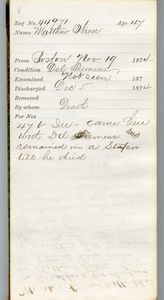 Reg. No. 44971 Age 47
Name Matthew Shea
From Boston Nov 19 1874
Condition Del Tremens
Examined Not seen 187
Discharged Dec 5 1874
Removed
By whom Death
For Nos
47 b Ire - came here
with Del Tremens
remained in a Stupor
till he died